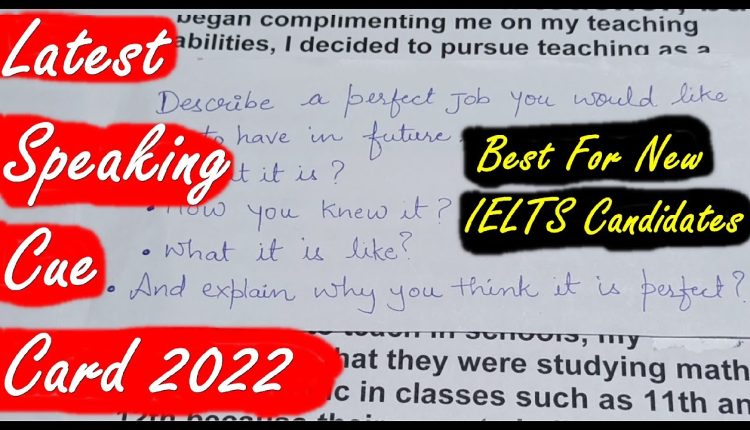 began complimenting me on my teaching
abilities, I decided to pursue teaching as a
Latest
Speaking
Cue
Card 2022
Describe a perfect Job you would like
to have in future
it is?
How you knew it?
• What it is like?
• And explain why you think it is perfect?
Best For New
IELTS Candidates
to teach in schools, my
that they were studying math
in classes such as 11th an
12th because their